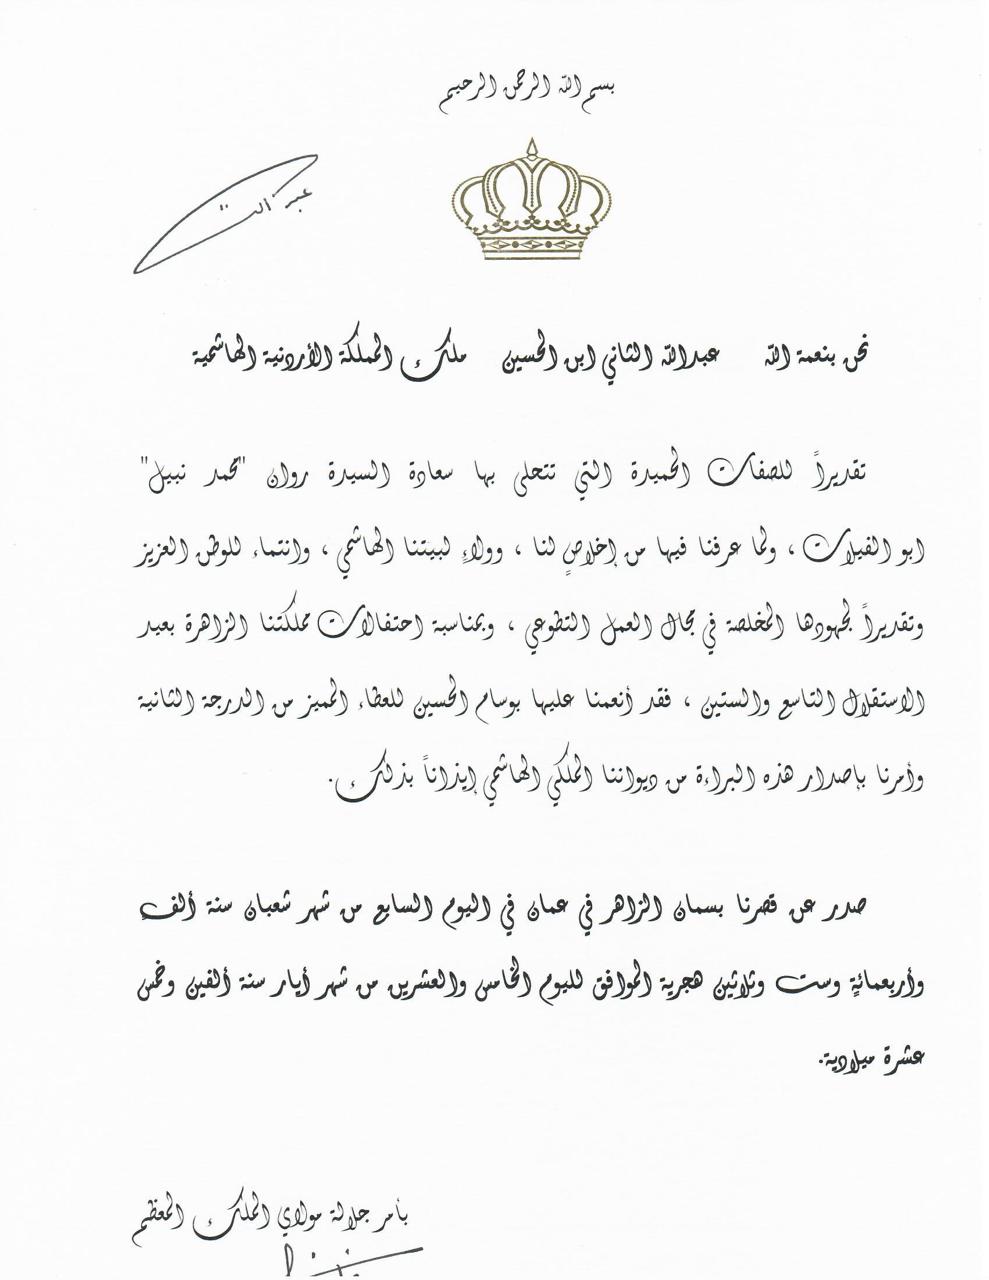 بسم الله الرحمن الرحيم
عبد الله
نحن بنعمة الله عبدالله الثاني ابن الحسين ملك المملكة الأردنية الهاشمية
تقديراً للصفات الحميدة التي تتحلى بها سعادة السيدة روان "محمد نبيل"
ابو الفيلات ، ولما عرفنا فيها من إخلاصٍ لنا ، وولاءٍ لبيتنا الهاشمي ، وانتماء للوطن العزيز
وتقديراً لجهودها المخلصة في مجال العمل التطوعي ، وبمناسبة احتفالات مملكتنا الزاهرة بعيد
الاستقلال التاسع والستين ، فقد أنعمنا عليها بوسام الحسين للعطاء المميز من الدرجة الثانية
وأمرنا بإصدار هذه البراءة من ديواننا الملكي الهاشمي إيذاناً بذلك.
صدر عن قصرنا بسمان الزاهر في عمان في اليوم السابع من شهر شعبان سنة ألفٍ
وأربعمائةٍ وست وثلاثين هجرية الموافق لليوم الخامس والعشرين من شهر أيار سنة ألفين وخمس
عشرة ميلادية.
بأمر جلالة مولاي الملك المعظم